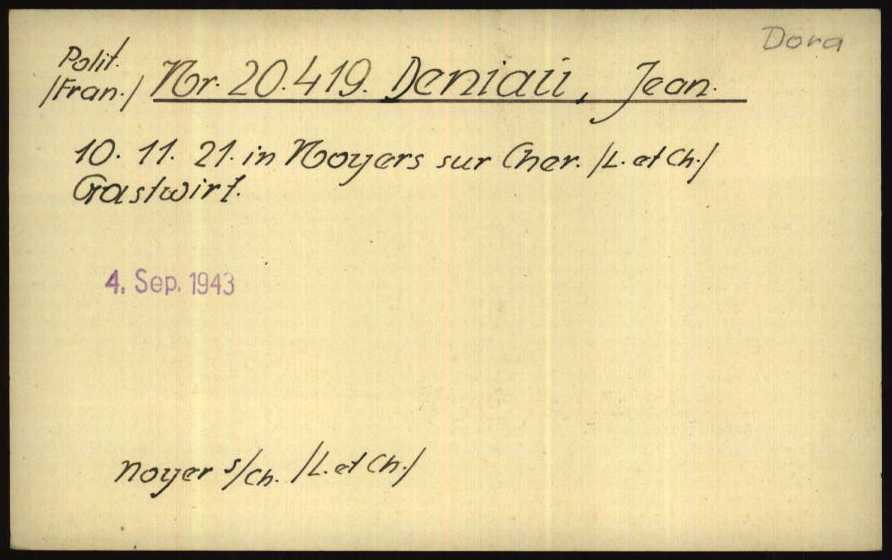 Dora
Polit.
/Fran./ Nr. 20.419. Deniaü, Jean.
10. 11. 21. in Noyers sur Cher. /L. et Ch./
Gastwirt.
4. Sep. 1943
Noyer s/Ch. /L. et Ch./